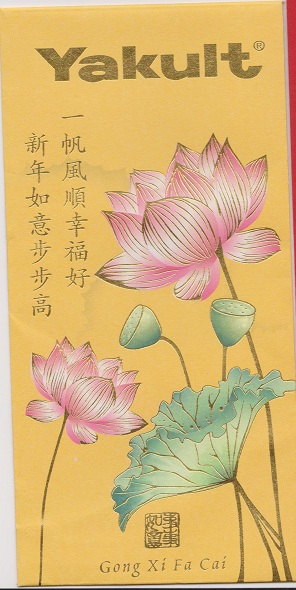 Yakult®
一帆風順幸福好
新年如意步步高
事事如意
Gong Xi Fa Cai